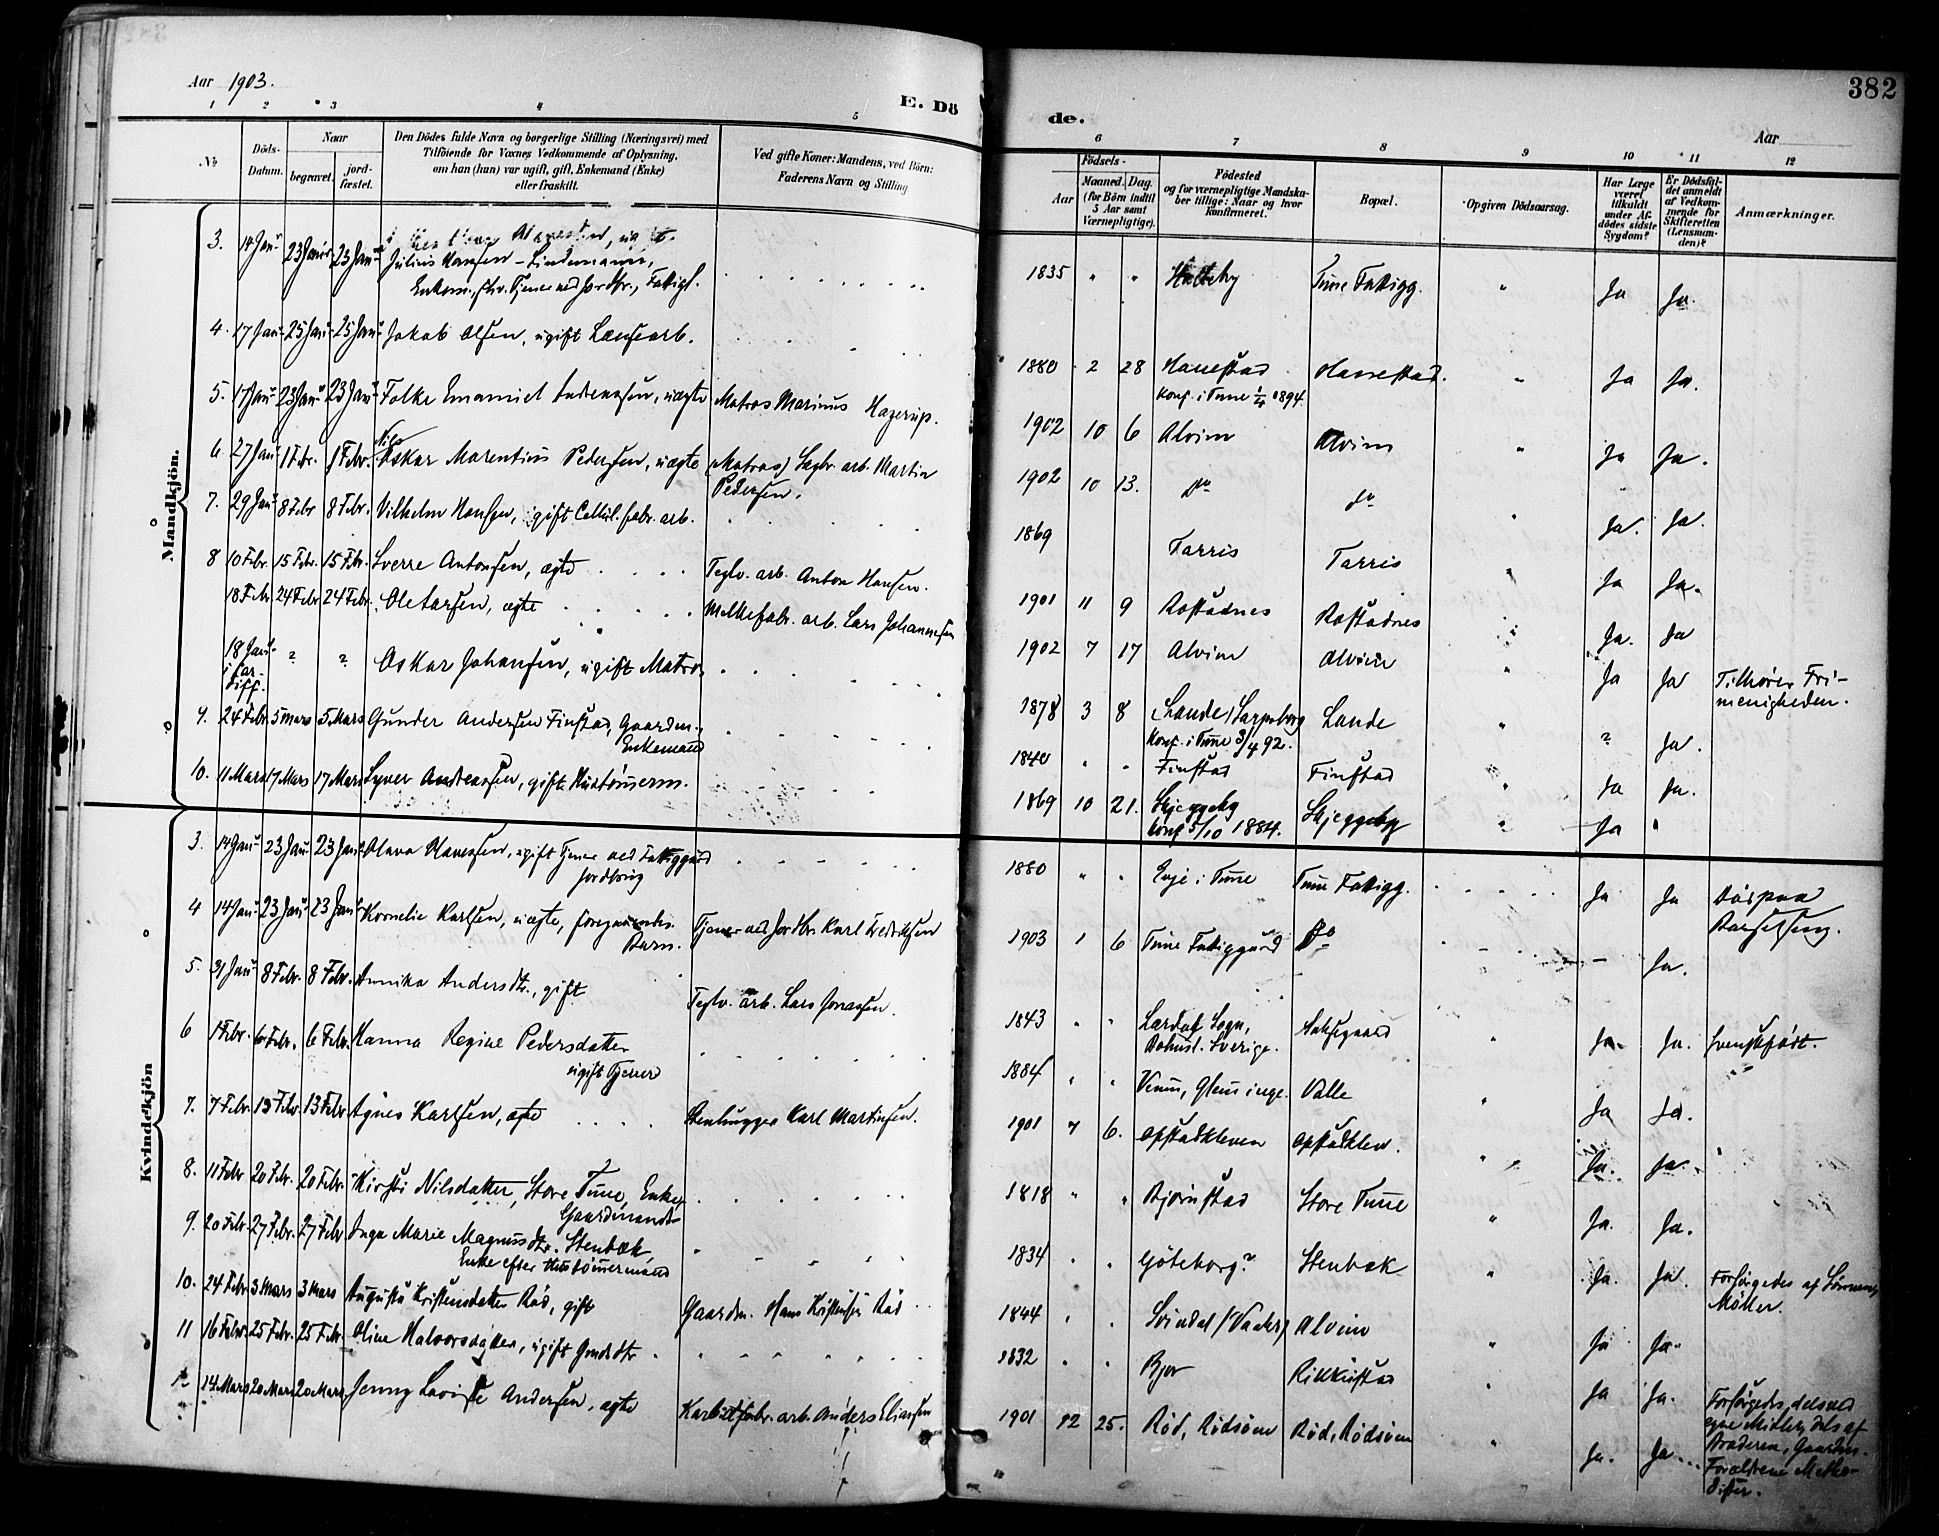 Aar 1903.
E. Dö
de.
382
Aar
1 2 3 4 5
6 7 8 9 10 11 12
No
Döds-Datum.
Naar
begravet.
jord-fæstet.
Den Dödes fulde Navn og borgerlige Stilling (Næringsvei) med
Tilföiende for Voxnes Vedkommende af Oplysning,
om han (hun) var ugift, gift, Enkemand (Enke)
eller fraskilt.
Ved gifte Koner: Mandens, ved Börn:
Faderens Navn og Stilling
Födsels-
Aar
Maaned. Dag.
(for Börn indtil
5 Aar samt
Værnepligtige).
Födested
og for værnepligtige Mandsku-
ber tillige: Naar og hvor
konfirmeret.
Bopæl.
Opgiven Dödsaarsag.
Har Læge
været
tilkaldt
under Af-
dödes sidste
Sygdom?
Er Dödsfal-
det anmeldt
af Vedkom-
mende for
Skifteretten
(Lensman-
den)?
Anmærkninger.
Mandkjön.
3. 14 Jan 23 Jan 23 Jan Julius Hansen - Lindemann, 1835 " " Tune Fattigg. " Ja Ja.
Enkem., fhv. Tjener ved Jordbr., Fattigl.
4. 17 Jan 25 Jan 25 Jan Jakob Olsen, ugift Lænsearb. 1880 2 28 Hannestad Hannestad. " Ja Ja.
Konf. i Tune 1894.
5. 17 Jan 23 Jan 23 Jan Folke Emanuel Andreassen, uægte Matros Marinus Hagerup. 1902 10 6 Alvim Alvim " Ja Ja.
6 27 Jan 1 Febr. 1 Febr. Nils Oskar Marentius Pedersen, uægte (Matros) Sagbr. arb. Martin 1902 10 13. do do " Ja. Ja.
Pedersen.
7. 29 Jan 8 Febr 8 Febr. Vilhelm Hansen, ugift Cellul. fabr. arb. 1869 Tarris Tarris " Ja Ja.
8 10 Febr. 15 Febr. 15 Febr. Sverre Antonsen, ægte Teglv. arb. Anton Hansen. 1901 11 9 Rostadnes Rostadnes " Ja. Ja
18 Febr 24 Febr 24 Febr. Ole Larsen, ægte Melkefabr. arb. Lars Johannesen 1902 7 17 Alvim Alvim " Ja Ja
18 Jan i Car-diff. ? ? Oskar Johansen, ugift Matros 1878 3 8 Lande / Sarpsborg Lande " ? Ja. Tilhører Fri-
menigheden.
Konf. i Tune 3/4 92.
9. 24 Febr. 5 Mars 5 Mars Gunder Andersen Finstad, Gaardm., 1840 " " Finstad Finstad " Ja Ja.
Enkemand
10. 11 Mars 17 Mars 17 Mars Syver Andreassen, gift Hustømerm. 1869 10 21. Skjeggeby Skjeggeby " Ja "
konf 5/10 1884.
Kvindekjön
3. 14 Jan 23 Jan 23 Jan Olava Hansen, ugift Tjener ved Fattiggaard 1880 " " i Tune Tune Fattigg. Ja Ja Døspaa
Barselseng.
Jordbrug
4 14 Jan 23 Jan 23 Jan Kornelie Karlsen, uægte, foregaaendes Tjener ved Jordbr Karl Fredriksen 1903 1 6 Tune Fattiggaard Do - Ja.
Barn.
5. 31 Jan 8 Febr. 8 Febr. Annika Andersdtr., gift Teglv. arb. Lars Jonassen. 1843 " " Sogn, " Ja. Ja. Svenskfødt.
Bohusl. Sverige.
6 1 Febr. 6 Febr. 6 Febr. Hanna Regine Pedersdatter 1884 " " Glemminge. Valle " Ja Ja.
ugift Tjener
7. 7 Febr. 13 Febr 13 Febr Agnes Karlsen, ægte Stenhugger Karl Martinsen. 1901 7 6. Opstadkleven Opstadklev. " Ja. Ja.
8. 11 Febr 20 Febr. 20 Febr. Kirsti Nilsdatter, Store Tune, Enke 1818 " " Bjørnstad Store Tune " Ja. Ja.
Gaardmands
9. 20 Febr. 27 Febr. 27 Febr Inga Marie Magnusdtr. Stenbæk, 1834 " " Göteborg? Stenbæk " Ja. Ja. Forsørgedes af Sønnen,
Møller.
Enke efter Hustømermand
10. 24 Febr 3 Mars 3 Mars Augusta Kristensdatter Rød, gift Gaardm. Hans Kristensen Rød 1844 " " Svindal (Vaaler) Alvim " Ja Ja.
11 16 Febr. 25 Febr. 25 Febr. Oline Halvorsdatter, ugift Gmdsdtr. 1832 " " Bjor " Ja Ja. Forsørgedes, dels ved
egne Midler, dels af
Broderen, Gaardm.
12 14 Mars 20 Mars 20 Mars Jenny Lovise Andersen, ægte Karbidfabr. arb. Anders Eliassen 1901 12 25. Rød, Rødsøen Rød, Rødsøen " Ja. Ja Forældrene Metho-
dister.